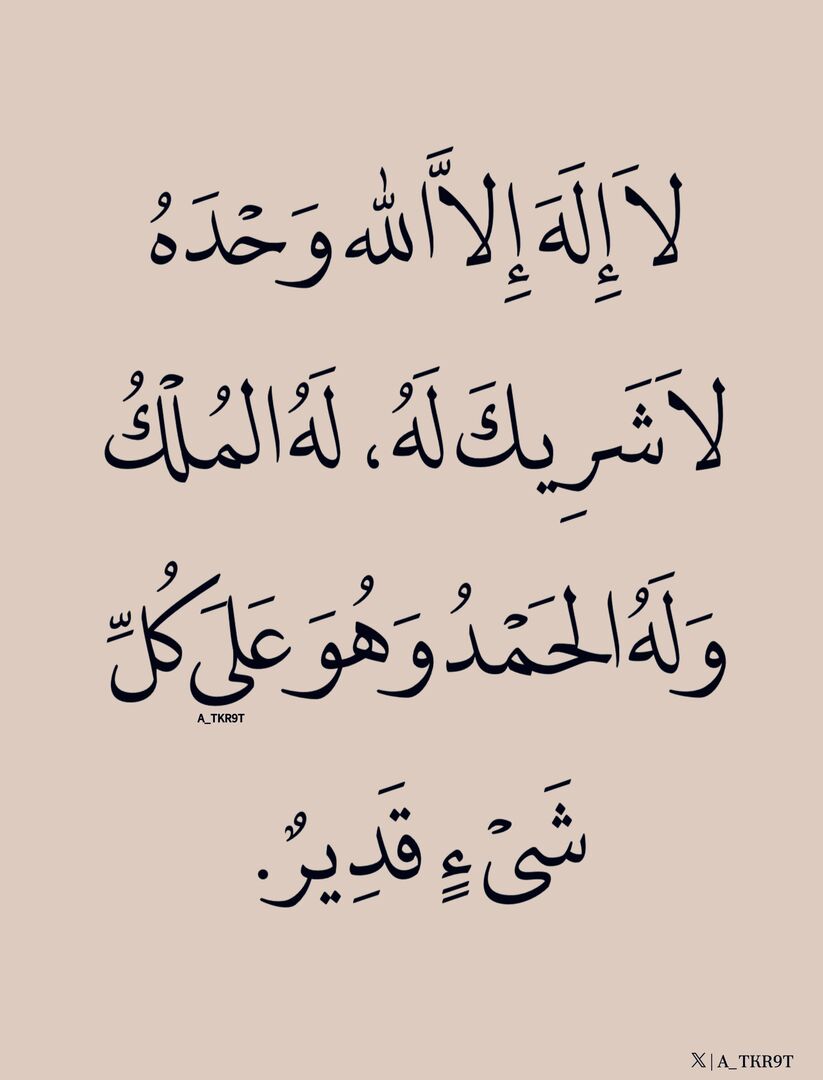 لاَ إِلَهَ إِلاَّ الله وَحْدَهُ
لاَ شَرِيكَ لَهُ، لَهُ المُلْكُ
وَلَهُ الحَمْدُ وَهُوَ عَلَى كُلِّ
A_TKR9T
شَىْءٍ قَدِيرٌ.
𝕏 | A_TKR9T